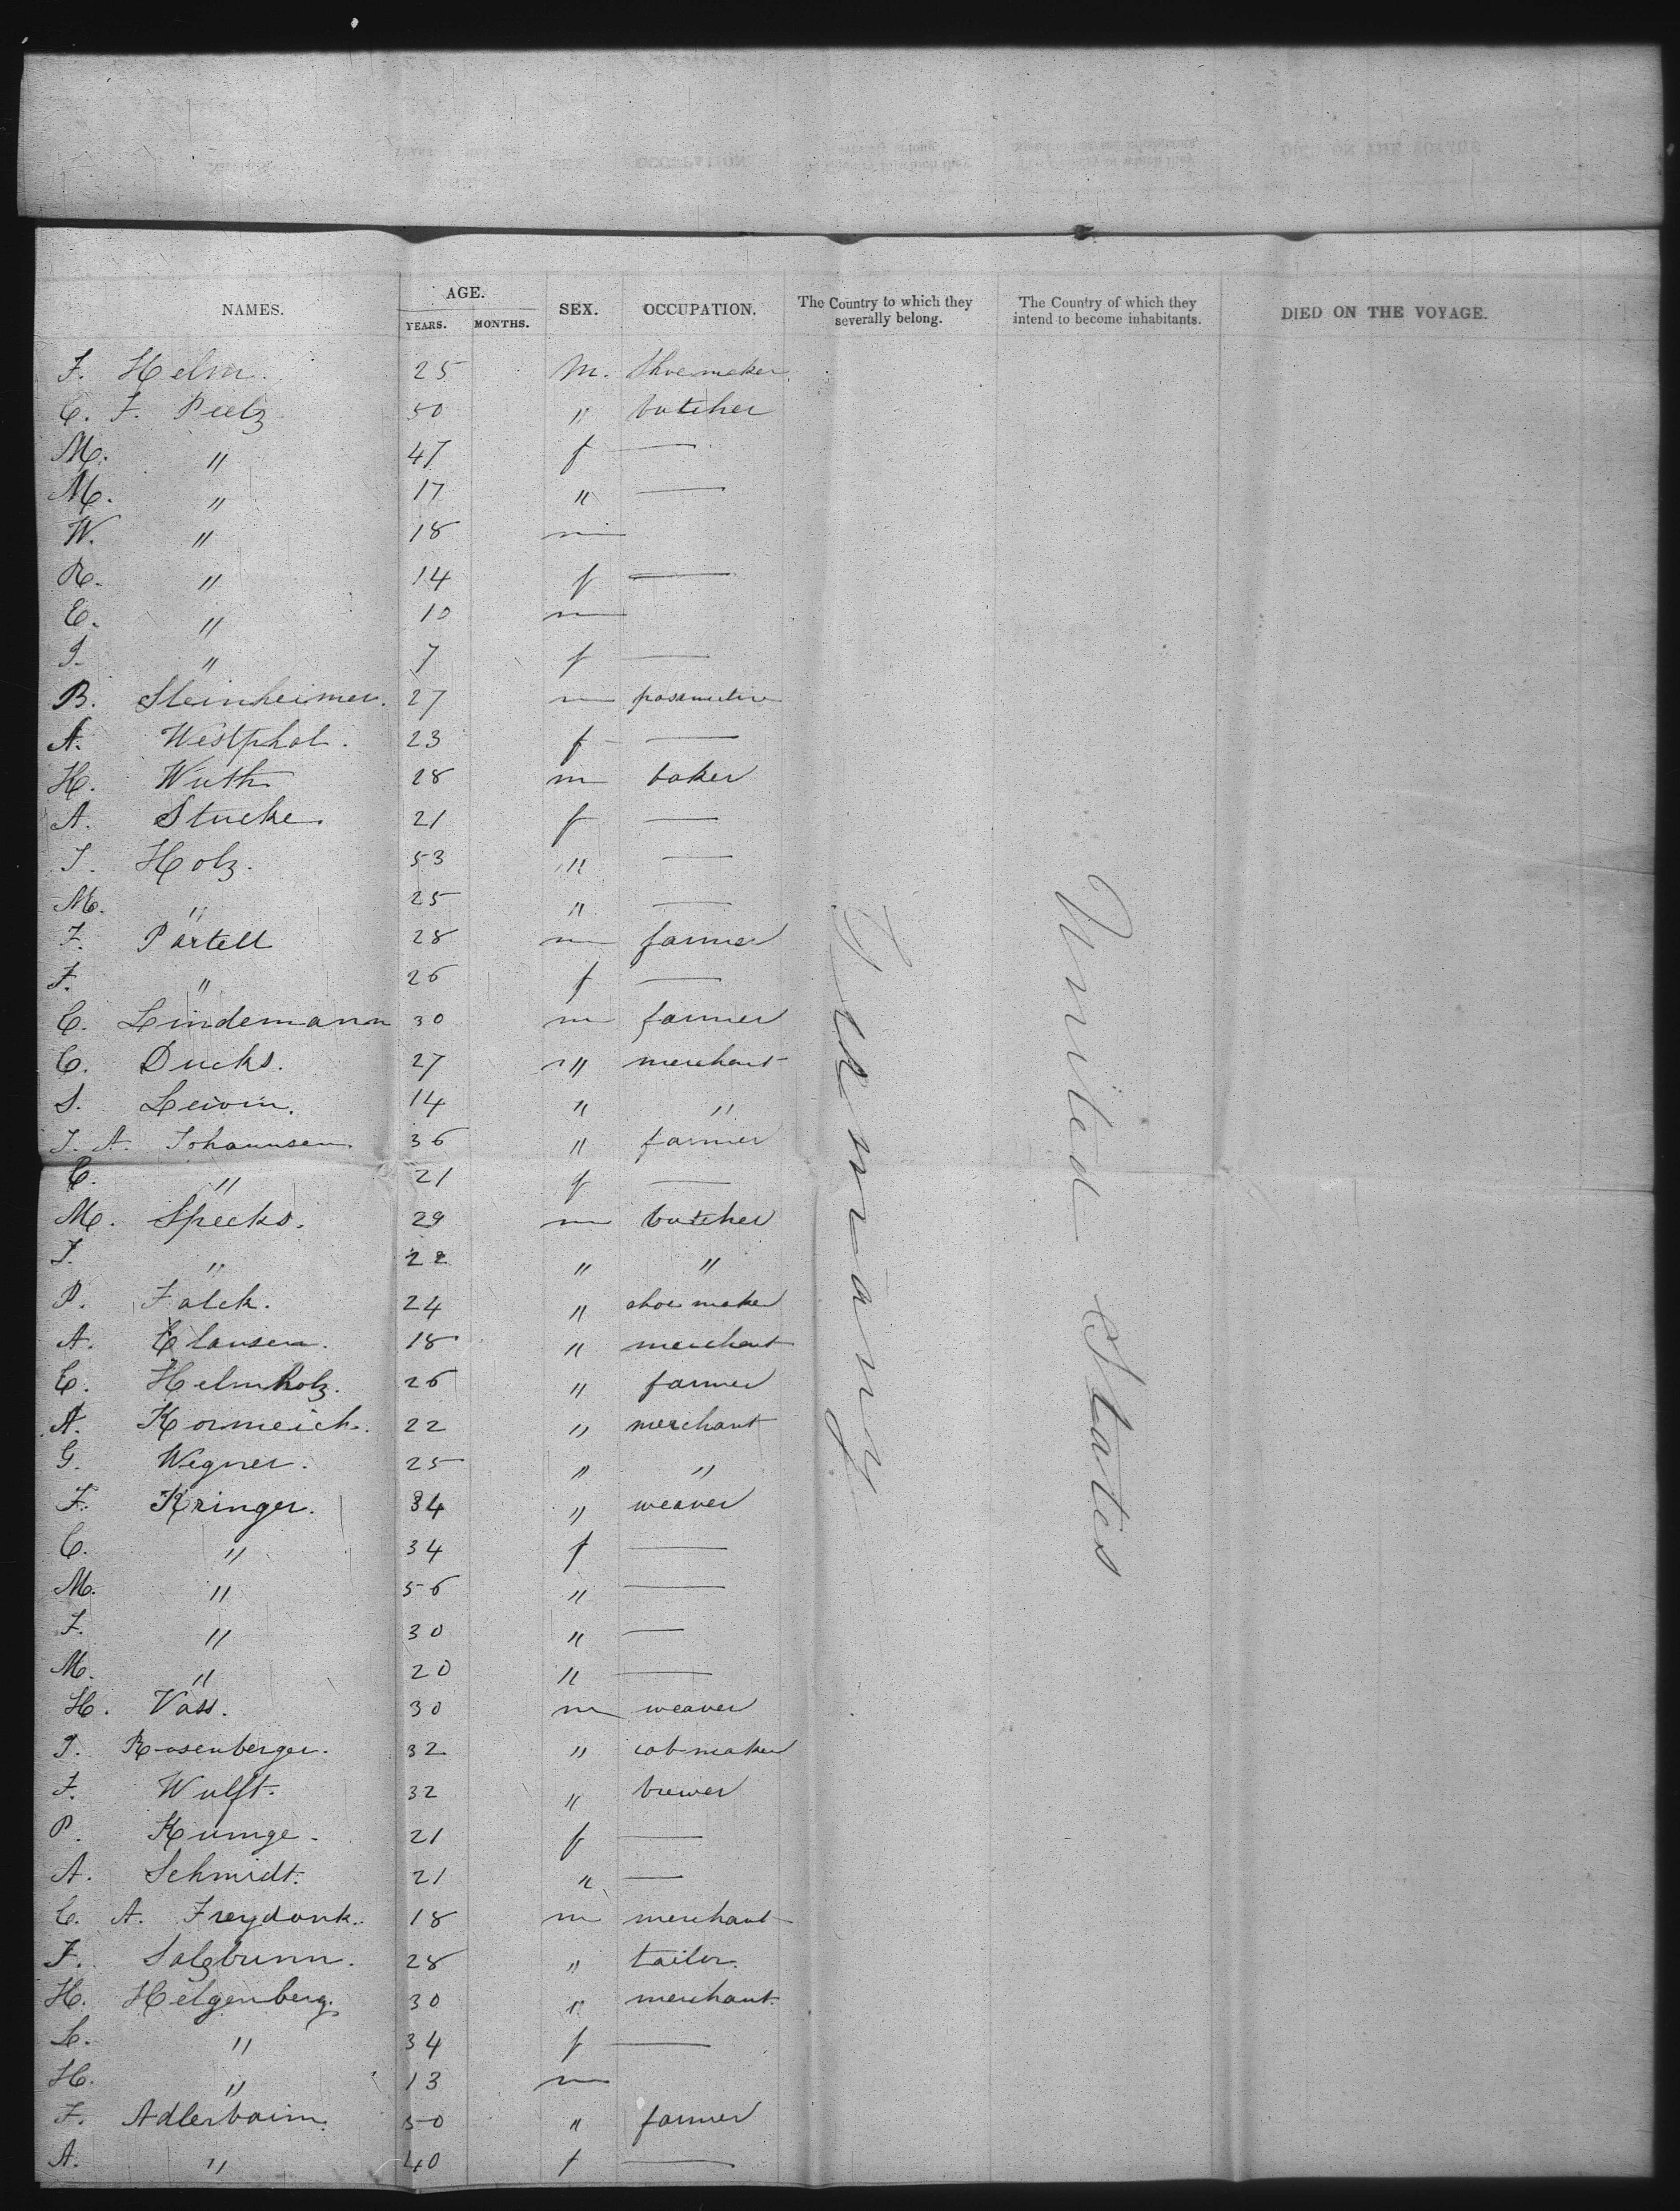 NAMES. AGE. YEARS. MONTHS. SEX. OCCUPATION. The Country to which they severally belong. The Country of which they intend to become inhabitants. DIED ON THE VOYAGE.
F. Helm. 25 M. Shoemaker
C. F. Peelz 50 " butcher
M. " 47 f —
M. " 17 " —
W. " 18 m
R. " 14 f —
E. " 10 m
I. " 7 f —
B. Steinheimer. 27 m
A. Westphal. 23 f —
H. Wuth 28 m baker
A. Stucke. 21 f —
I. Holz. 53 " —
M. " 25 " —
F. Partell 28 m farmer
F. " 26 f —
C. Lindemann 30 m farmer
C. Ducks. 27 " merchant
S. Lewin. 14 " "
J. A. Johannsen. 36 " farmer
C. " 21 f —
M. Specks. 29 m butcher
J. " 22 " "
P. Falck. 24 " shoemaker
A. Clausen. 18 " merchant
E. Helmholz. 26 " farmer
A. Kormeich. 22 " merchant
G. Wegner. 25 " "
F. Kringer. 34 " weaver
C. " 34 f —
M. " 56 " —
F. " 30 " —
M. " 20 " —
H. Vass. 30 m weaver
J. Rosenberger. 32 " cabmaker
F. Wulft. 32 " brewer
P. Kumge. 21 f —
A. Schmidt. 21 " —
C. A. Freydank. 18 m merchant
F. Salzbrunn. 28 " tailor.
H. Helgenberg. 30 " merchant.
L. " 34 f —
H. " 13 m
F. Adlerbaim. 50 " farmer
A. " 40 f —
Germany
United States